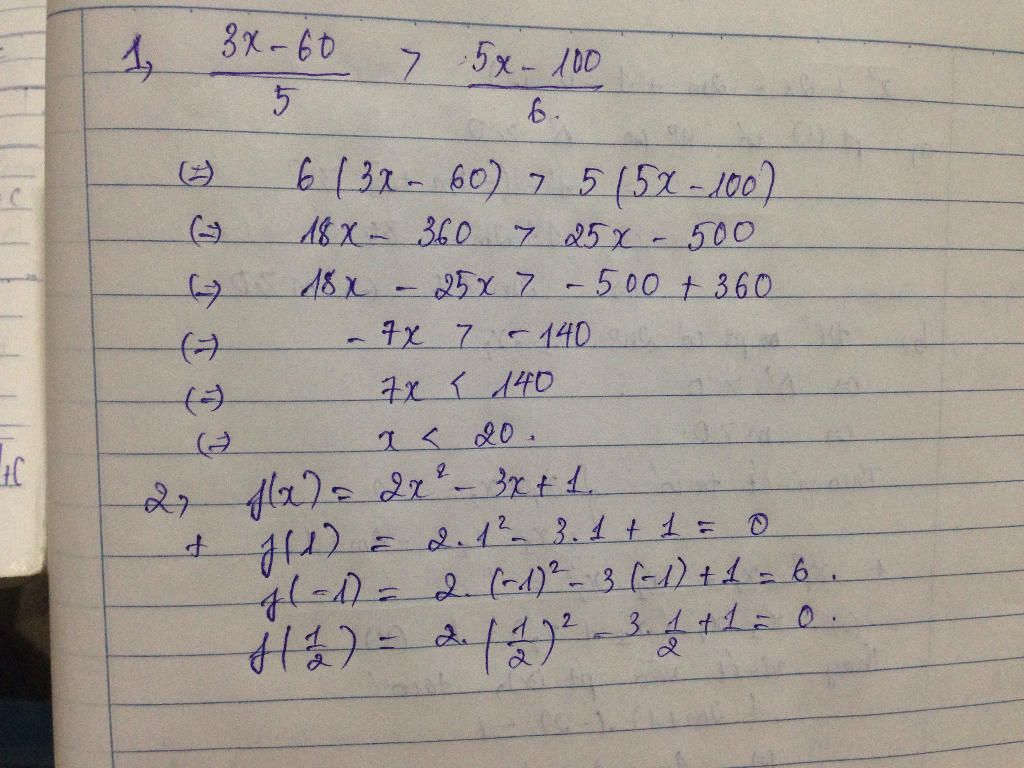 1, (3x - 60)/5 > (5x - 100)/6.
(=) 6(3x - 60) > 5(5x - 100)
(=) 18x - 360 > 25x - 500
(=) 18x - 25x > -500 + 360
(=) -7x > -140
(=) 7x < 140
(=) x < 20.
2, f(x) = 2x² - 3x + 1.
+ f(1) = 2.1² - 3.1 + 1 = 0
f(-1) = 2.(-1)² - 3(-1) + 1 = 6.
f(1/2) = 2.(1/2)² - 3.1/2 + 1 = 0.